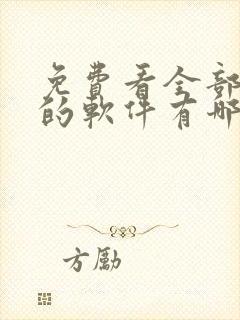 免費看全部
的軟件有哪
方勵